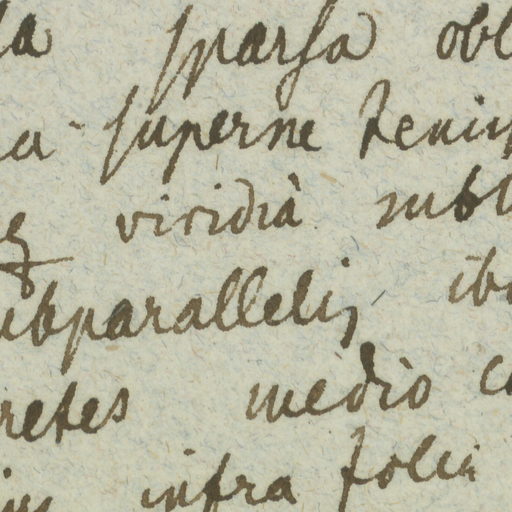 sparsa obl
superne tenui
viridia subt
ubparallelis ib
retes medio c
infra folia